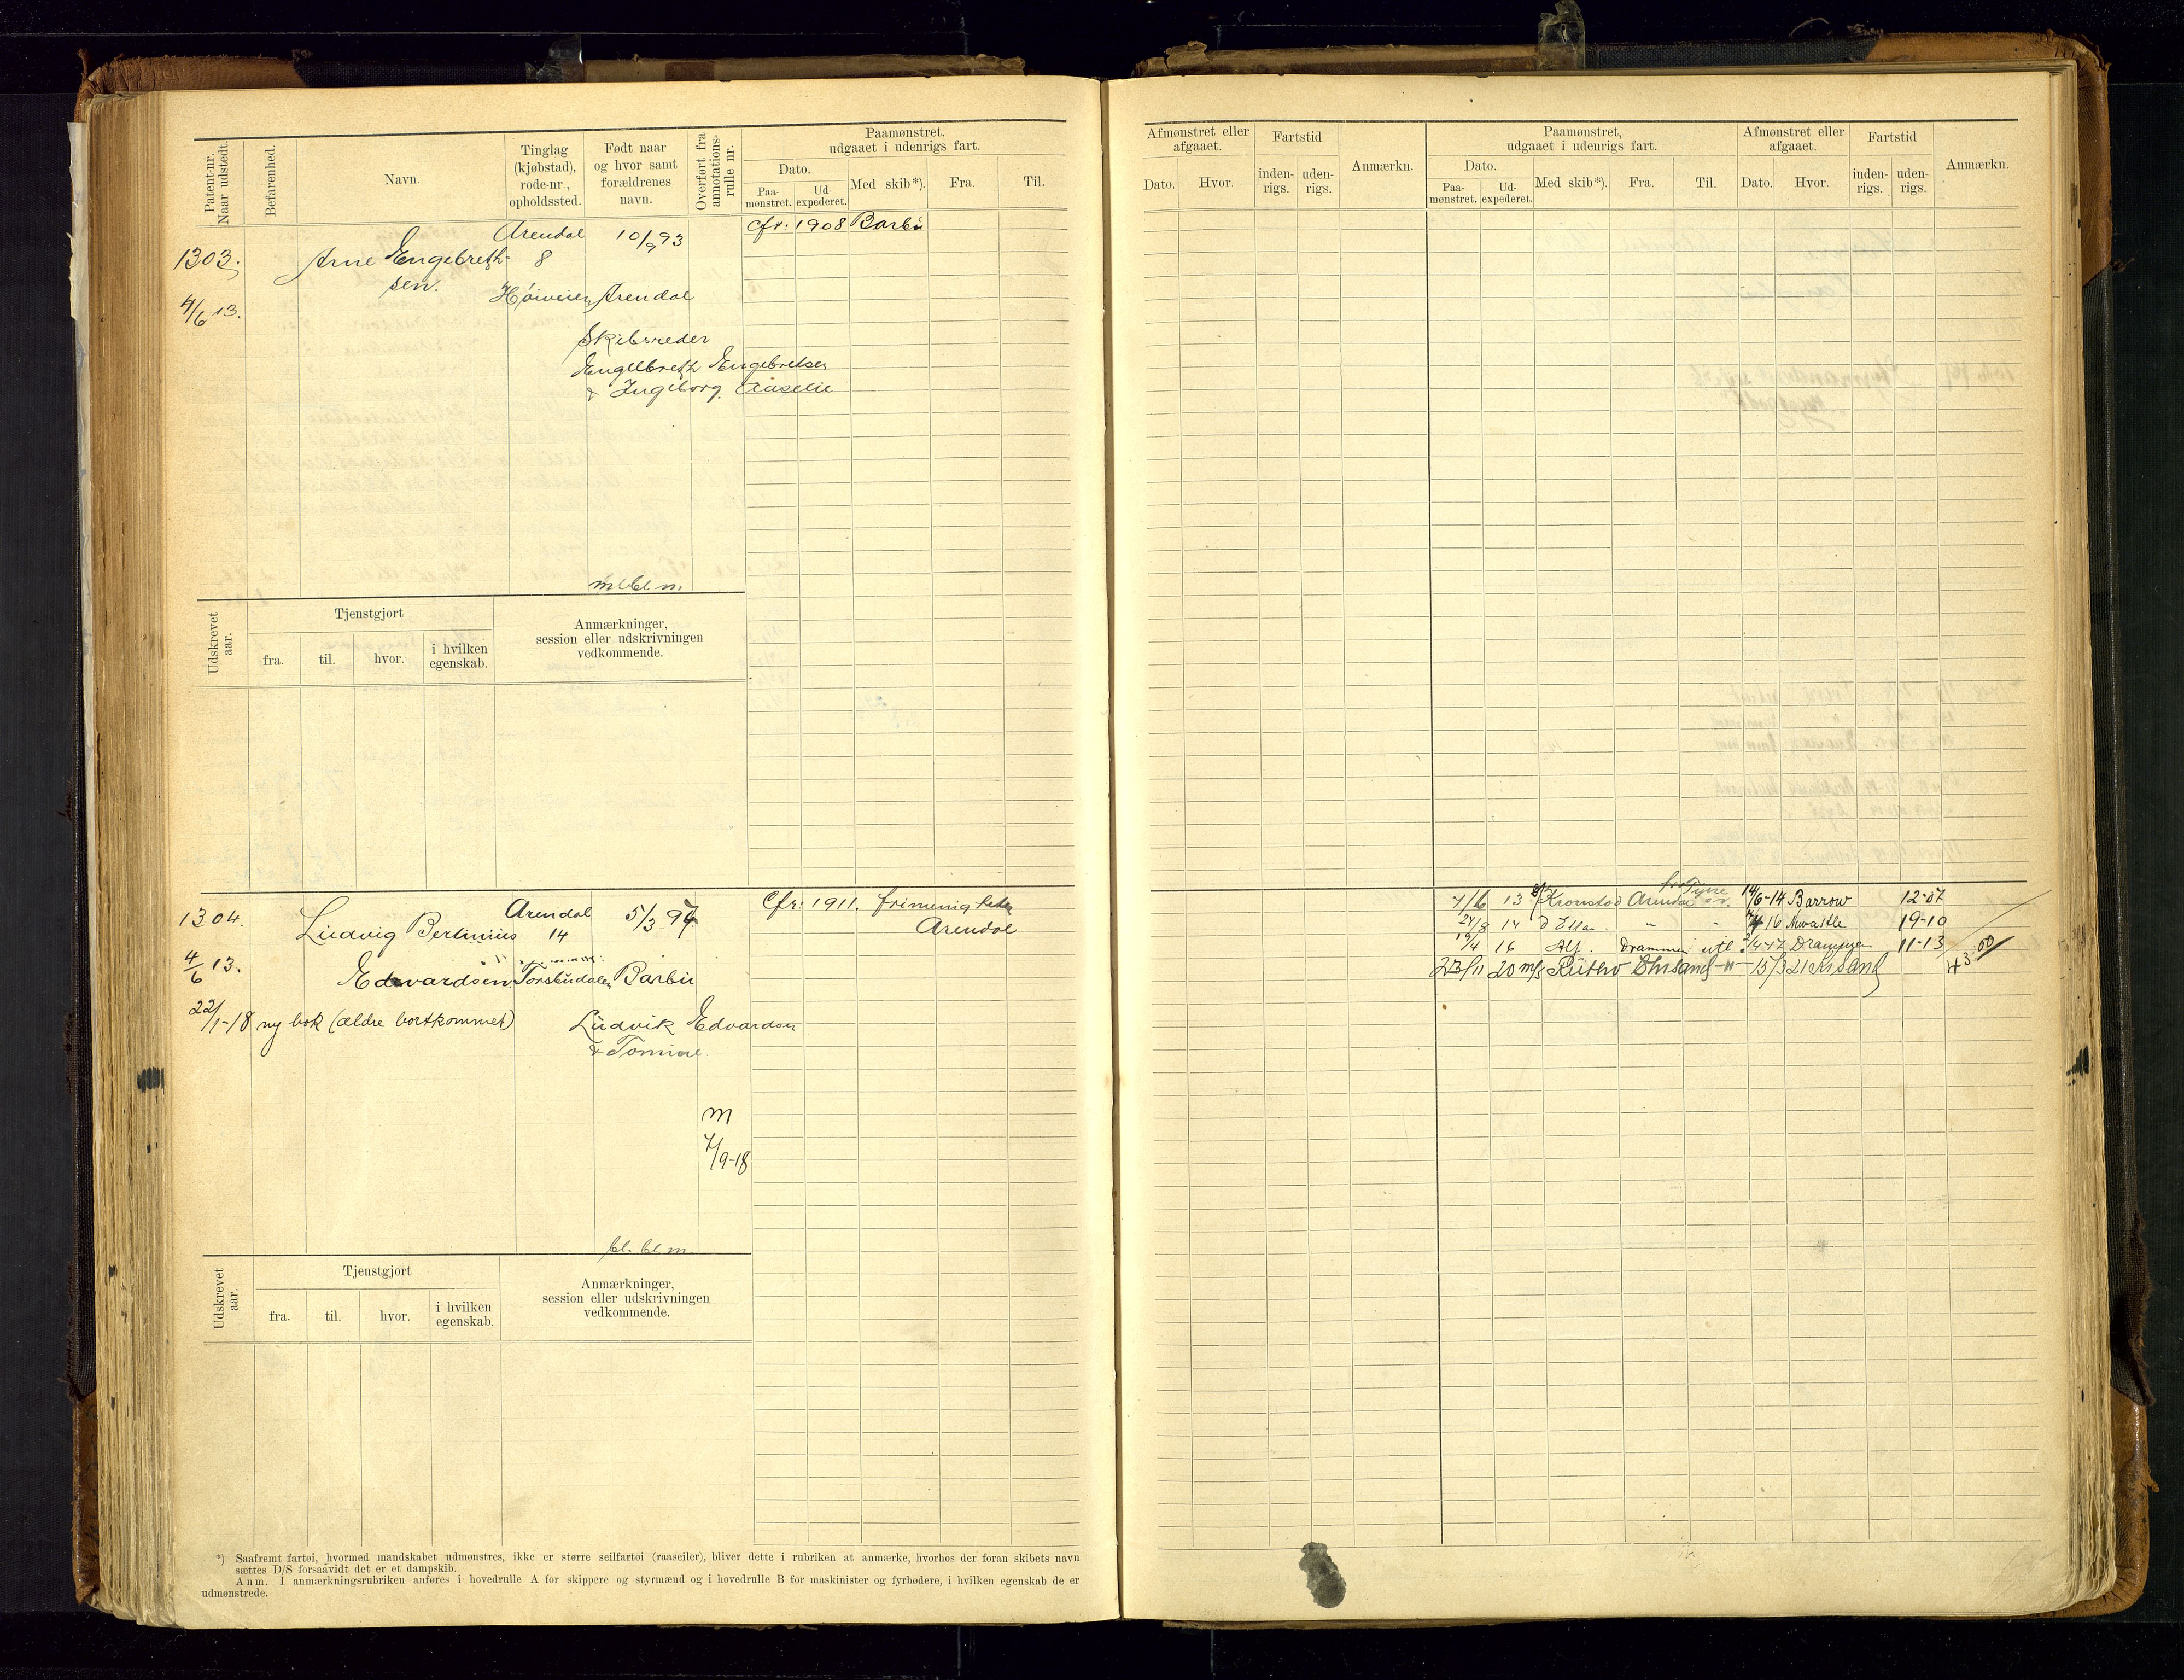 Patent-nr. Naar udstedt.
Befarenhed.
Navn.
Tinglag (kjøbstad), rode-nr., opholdssted.
Født naar og hvor samt forældrenes navn.
Overført fra annotations-rulle nr.
Paamønstret, udgaaet i udenrigs fart.
Dato.
Paa-mønstret.
Ud-expederet.
Med skib*).
Fra.
Til.
1303.
4/6 13.
Arne Engebreth-
sen.
Arendal
8
Høiveien
10/9 93
Arendal
Skibsreder
Engelbreth Engebretsen
& Ingeborg Aaselie
Cfr: 1908 Barbu
m bl n.
Udskrevet aar.
Tjenstgjort
fra.
til.
hvor.
i hvilken egenskab.
Anmærkninger, session eller udskrivningen vedkommende.
1304.
4/6 13.
Ludvig Bertinius
Edwardsen.
Arendal
14
Torsbudalen
5/3 97
Barbu
Ludvik Edvardsen
& Tomine.
22/1-18 ny bok (ældre bortkommet)
Cfr: 1911. frimenigheten
Arendal
m
7/9-18
bl. bl m.
Udskrevet aar.
Tjenstgjort
fra.
til.
hvor.
i hvilken egenskab.
Anmærkninger, session eller udskrivningen vedkommende.
*) Saafremt fartøi, hvormed mandskabet udmønstres, ikke er større seilfartøi (raaseiler), bliver dette i rubriken at anmærke, hvorhos der foran skibets navn
sættes D/S forsaavidt det er et dampskib.
Anm. I anmærkningsrubriken anføres i hovedrulle A for skippere og styrmænd og i hovedrulle B for maskinister og fyrbødere, i hvilken egenskab de er
udmønstrede.
Afmønstret eller afgaaet.
Dato.
Hvor.
Fartstid
inden-rigs.
uden-rigs.
Anmærkn.
Paamønstret, udgaaet i udenrigs fart.
Dato.
Paa-mønstret.
Ud-expederet.
Med skib*).
Fra.
Til.
Afmønstret eller afgaaet.
Dato.
Hvor.
Fartstid
inden-rigs.
uden-rigs.
Anmærkn.
7/6 13 Kronstad Arendal Tyne 14/6-14 Barrow 12-07
27/8 14 d Ella " " 16 Newcastle 19-10
19/4 16 Alf. Drammen utl. 2/4-17 Drammen 11-13
23/11 20 m/s Rutho Chrsand -"- 15/3 21 Krsand